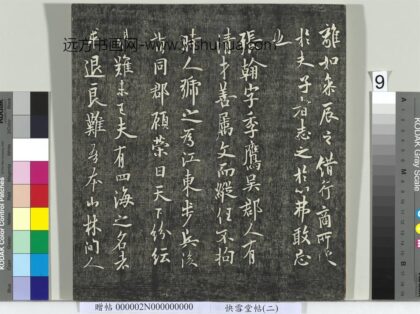 雖如参辰之借行商所以
於夫子者志之於心弗敢忘
也
張翰字季鷹吳郡人有
清才善屬文而縱任不拘
時人號之為江東步兵後
謂同郡顧榮曰天下紛紜
難未已夫有四海之名者
求退良難吾本山林間人
远方书画网-yfshuhua.com
9
KODAK Color Control Patches
KODAK Gray Scale
贈帖 000002N000000000 快雪堂帖(二)